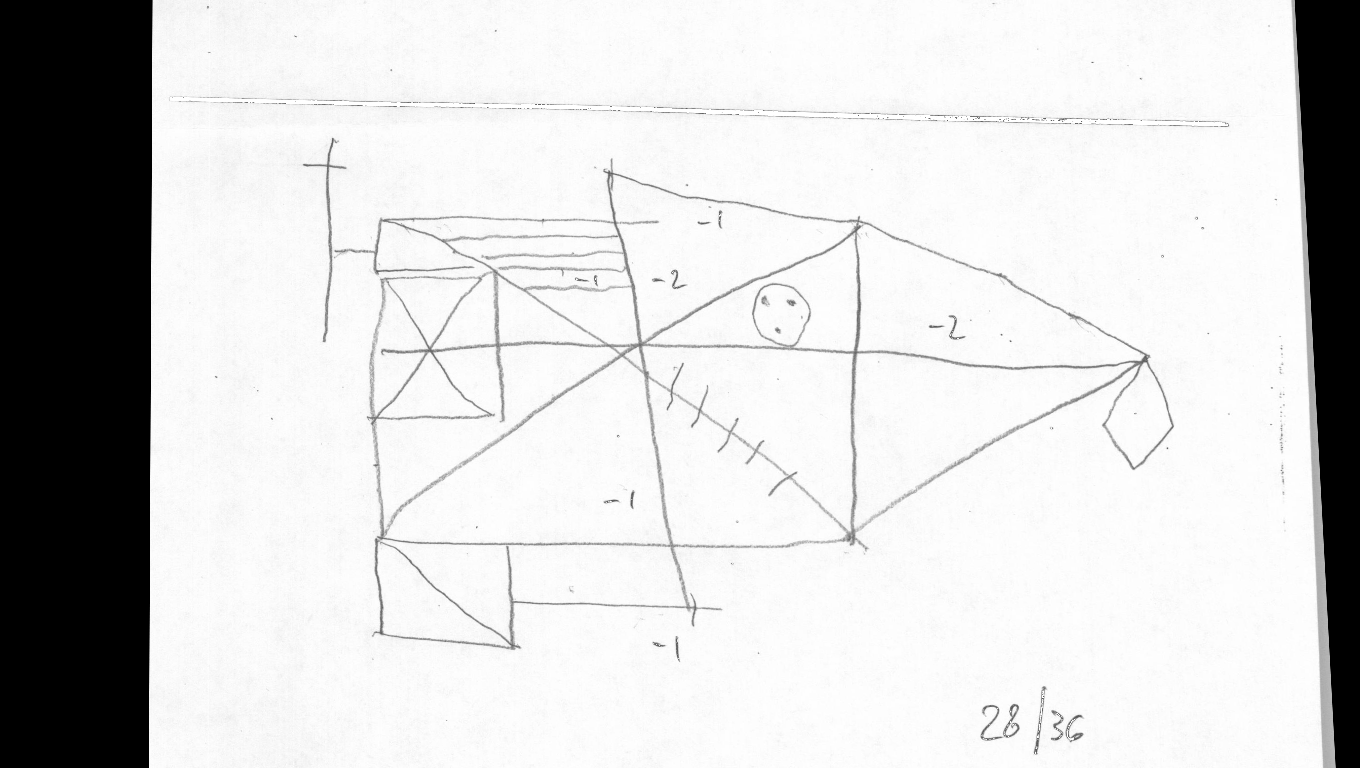 -1
-1
-2
-2
-1
-1
28/36